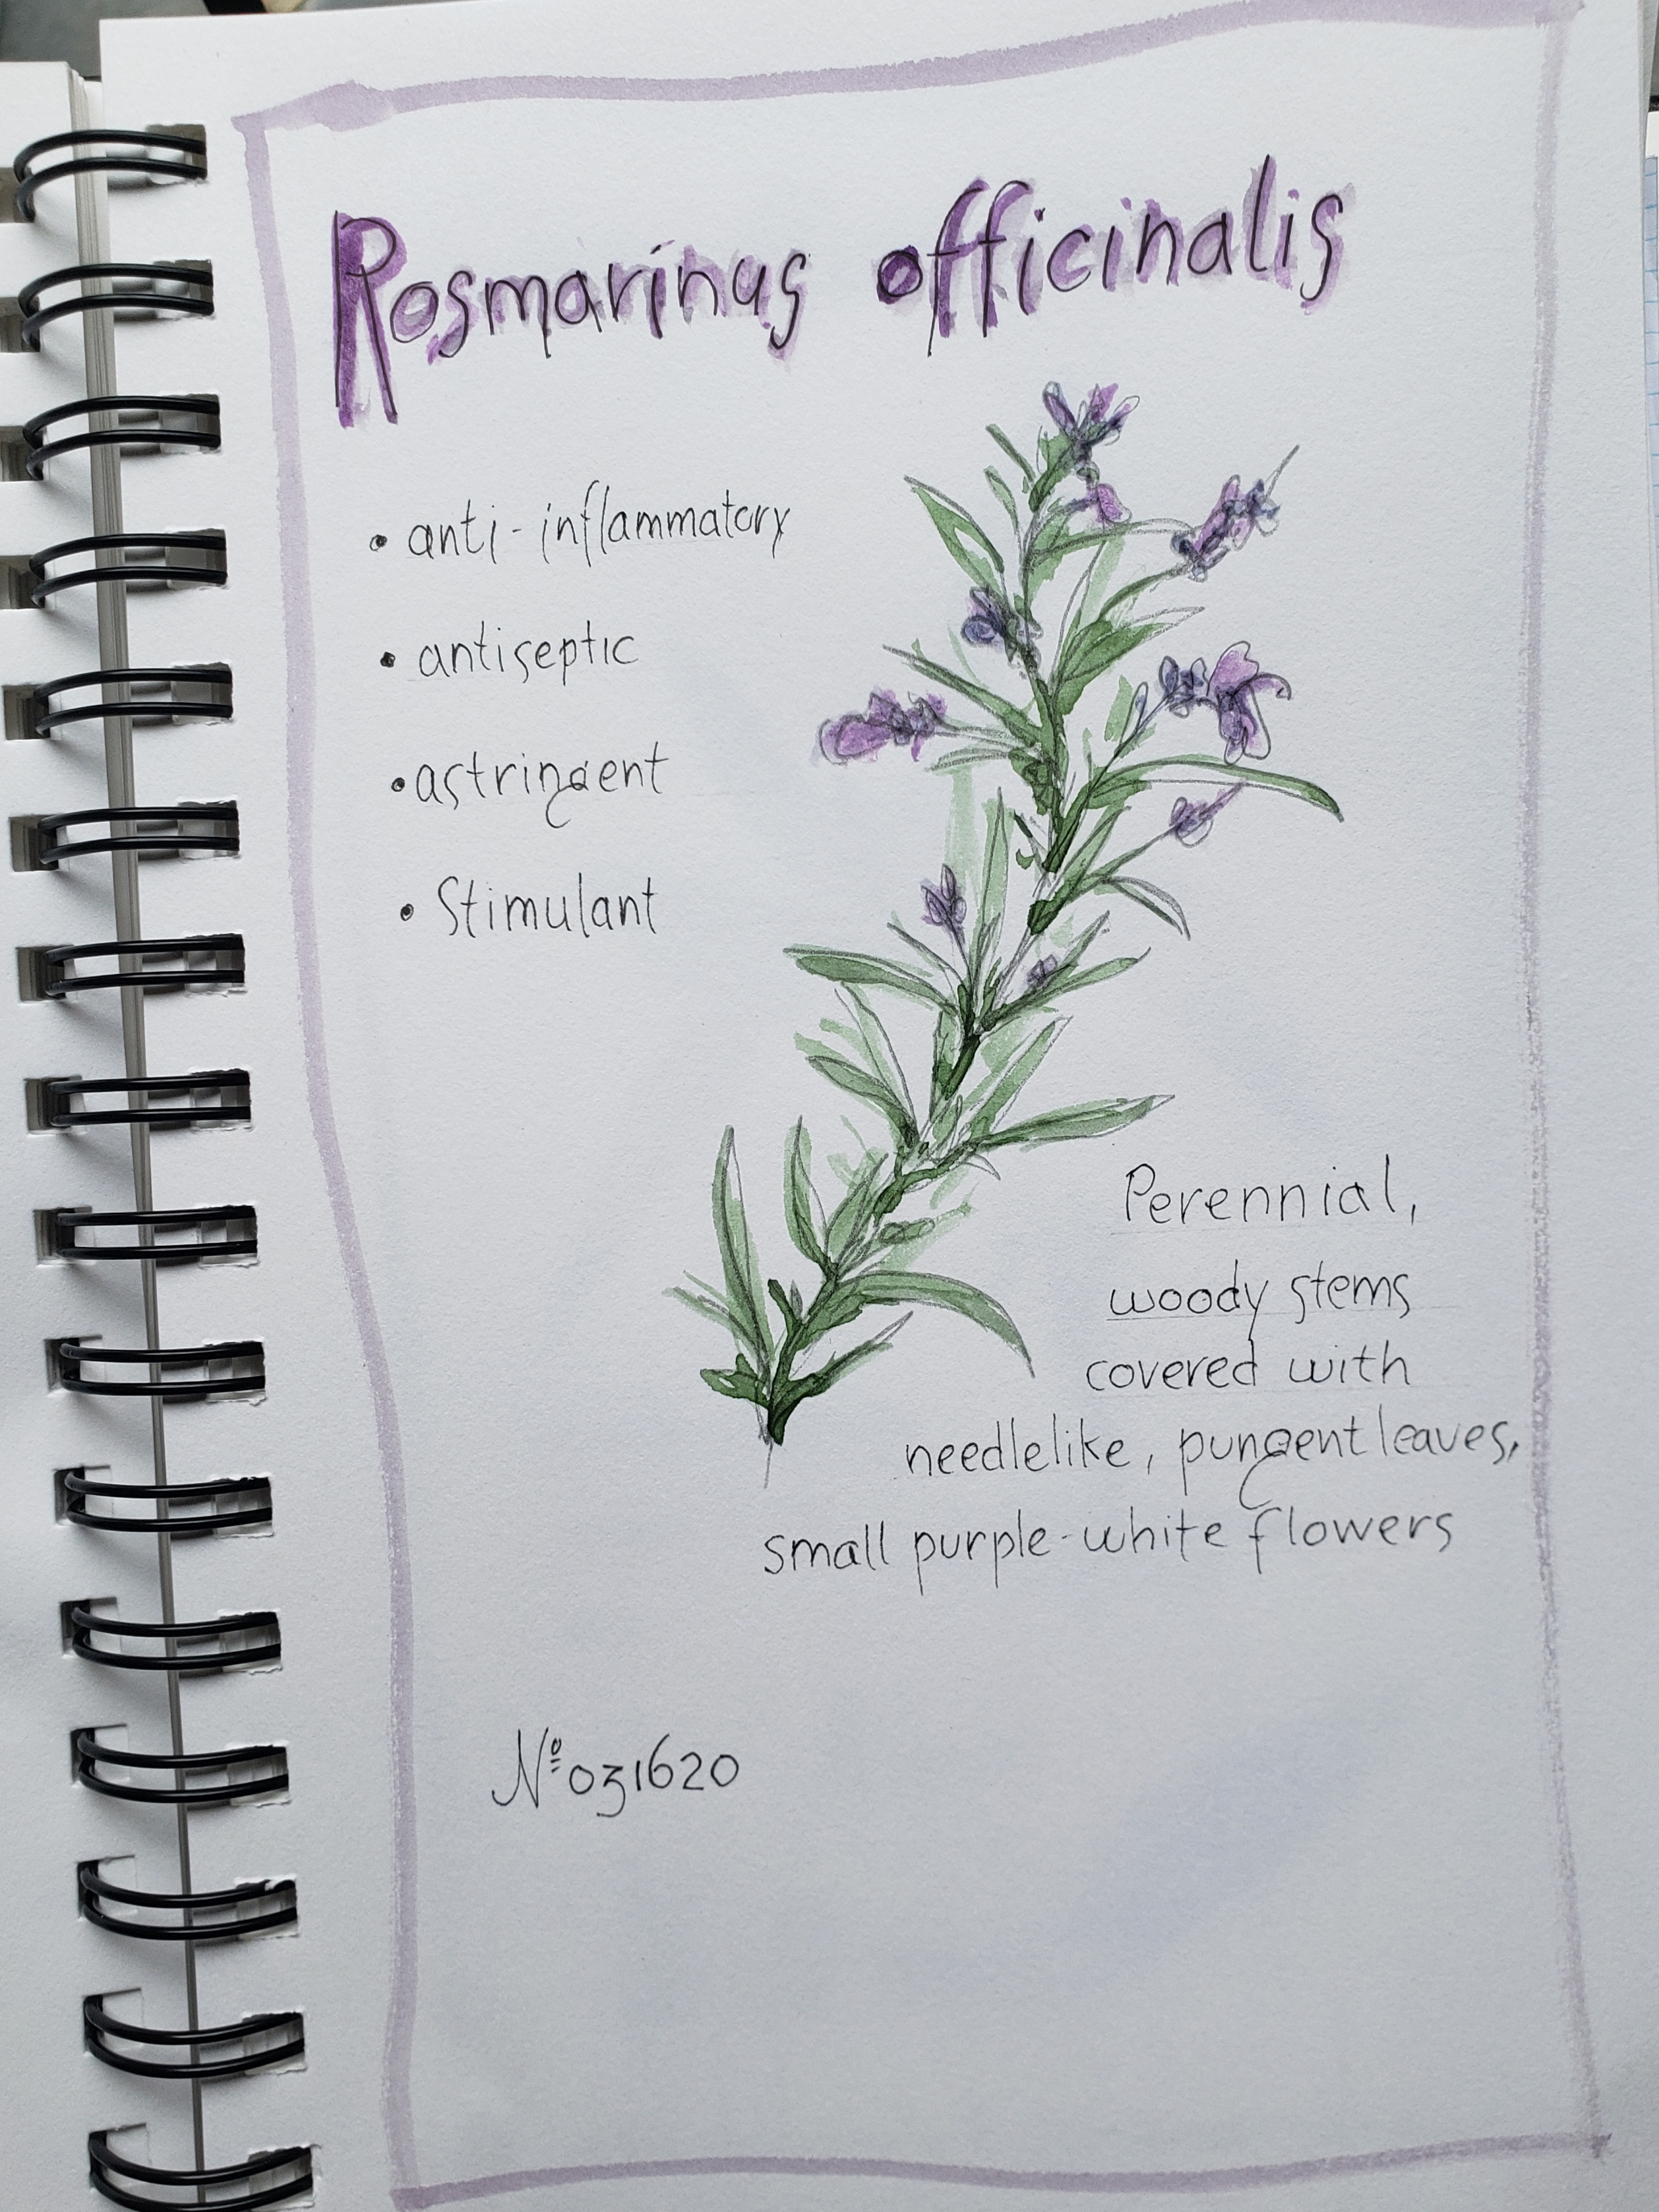 Rosmarinus officinalis
• anti-inflammatory
• antiseptic
• astringent
• Stimulant
Perennial,
woody stems
covered with
needlelike, pungent leaves,
small purple-white flowers
Nº 031620